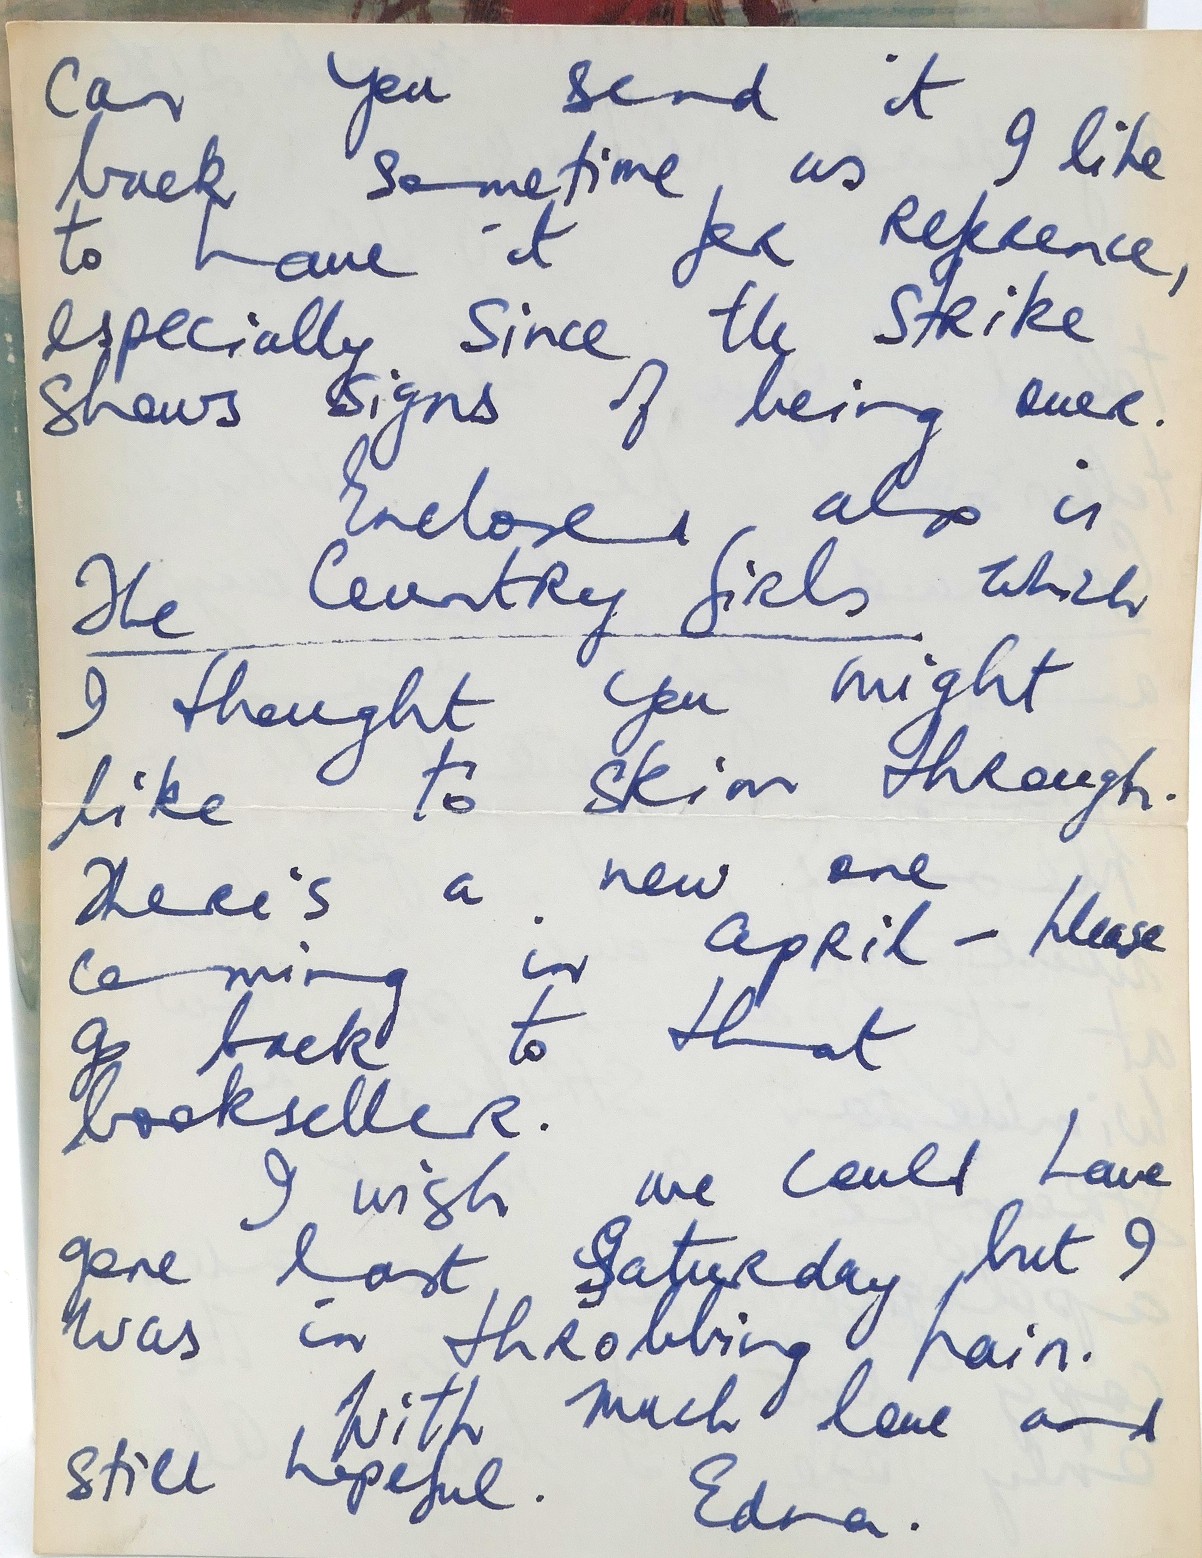 Can you send it
back sometime, as I like
to have it for reference,
especially since the strike
shows signs of being over.
Enclosed also is
The Country Girls which
I thought you might
like to skim through.
There's a new one
coming in April – please
go back to that
bookseller.
I wish we could have
gone last Saturday but I
was in throbbing pain.
With much love and
still hopeful. Edna.